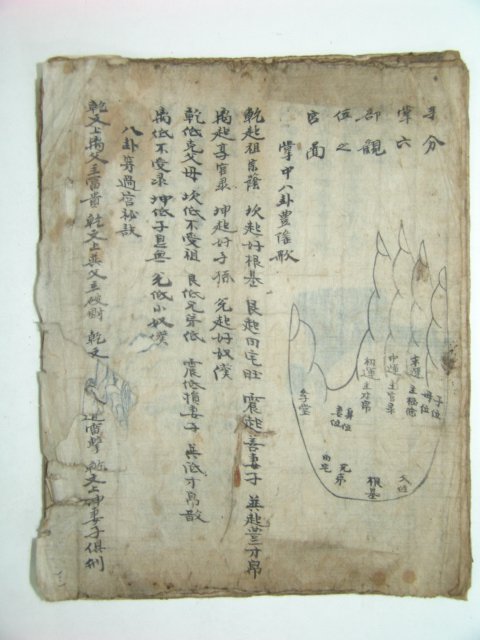 手分
掌六
部觀
位之
官面
掌中八卦豊傜歌
乾起祖宗蔭 坎起好根基 艮起田宅旺 震起喜妻子 巽起豊才帛
离起享官彔 坤起好子孫 兌起好奴僕
乾低克父母 坎低不受祖 艮低兄弟低 震低損妻子 巽低才帛散
离低不受彔 坤低子息無 兌低小奴僕
八卦等過宮秘訣
乾文上离父主冨貴 乾文上巽父主破財 乾文 迅雷擊 乾文上坤妻子俱刑
初運主才帛
中運主官彔
末運主福德
母位
子位
命堂
身位
妻位
田宅
兄弟
根基
父位